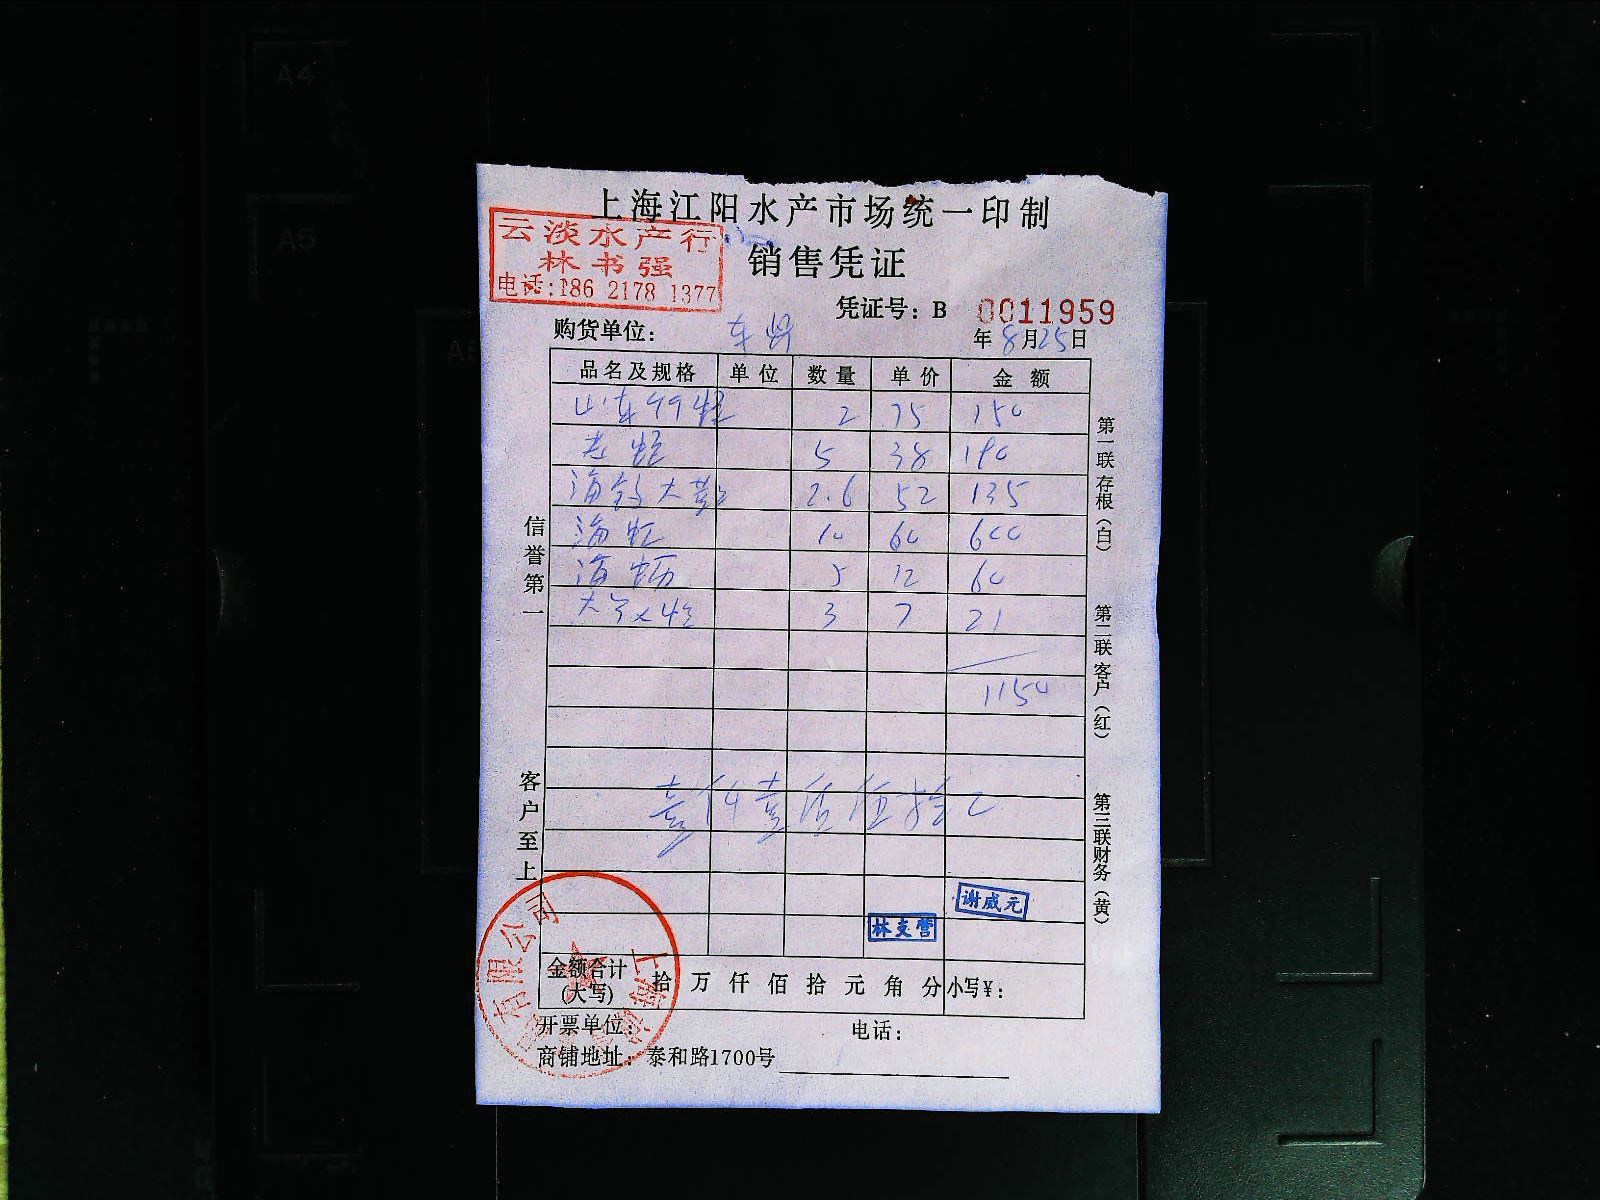 A4
A5
上海江阳水产市场统一印制
云淡水产行
林书强
电话:186 2178 1377
销售凭证
凭证号：B 0011959
购货单位：
年8月25日
品名及规格 单位 数量 单价 金额
山东 2 75 150
老 5 38 190
海 大 2.6 52 135
海虹 10 60 600
海蛎 5 12 60
大 3 7 21
1150
壹仟壹佰伍拾元
信誉第一
客户至上
第一联存根(白)
第二联客户(红)
第三联财务(黄)
谢威元
林支营
金额合计(大写) 拾万仟佰拾元角分 小写¥：
开票单位： 电话：
商铺地址：泰和路1700号
有限公司
上海